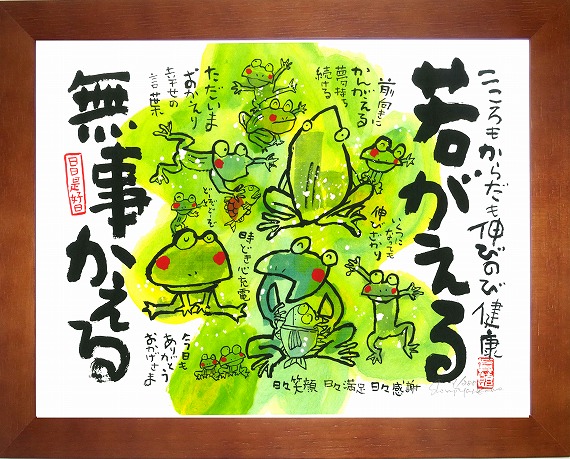 こころもからだも伸びのび 健康
若がえる
前向きに
かんがえる
夢持ち
続ける
いくつに
なっても
伸びざかり
ただいま
おかえり
幸せの
言葉
時どき心充電
日々笑顔 日々満足 日々感謝
今日も
ありがとう
おかげさま
無事かえる
日日是好日